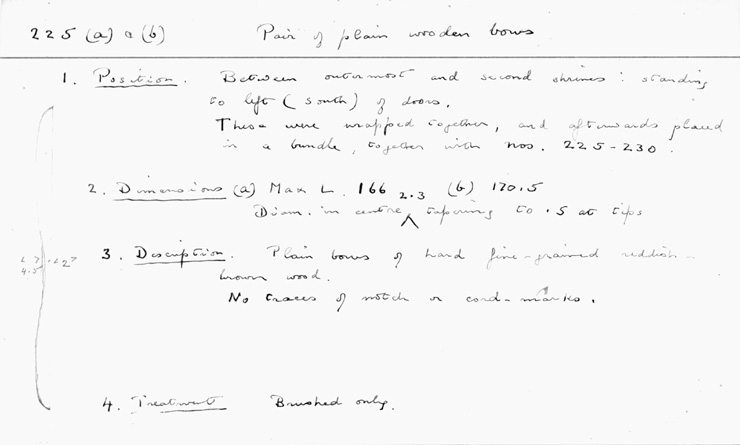 225 (a) & (b) Pair of plain wooden bows
1. Position. Between outermost and second shrines : standing
to left (south) of doors.
These were wrapped together, and afterwards placed
in a bundle, together with nos. 225-230.
2. Dimensions (a) Max L. 166 (b) 170.5
Diam. in centre 2.3 tapering to .5 at tips
3. Description. Plain bows of hard fine-grained reddish-
brown wood.
No traces of notch or cord-marks.
4. Treatment Brushed only.